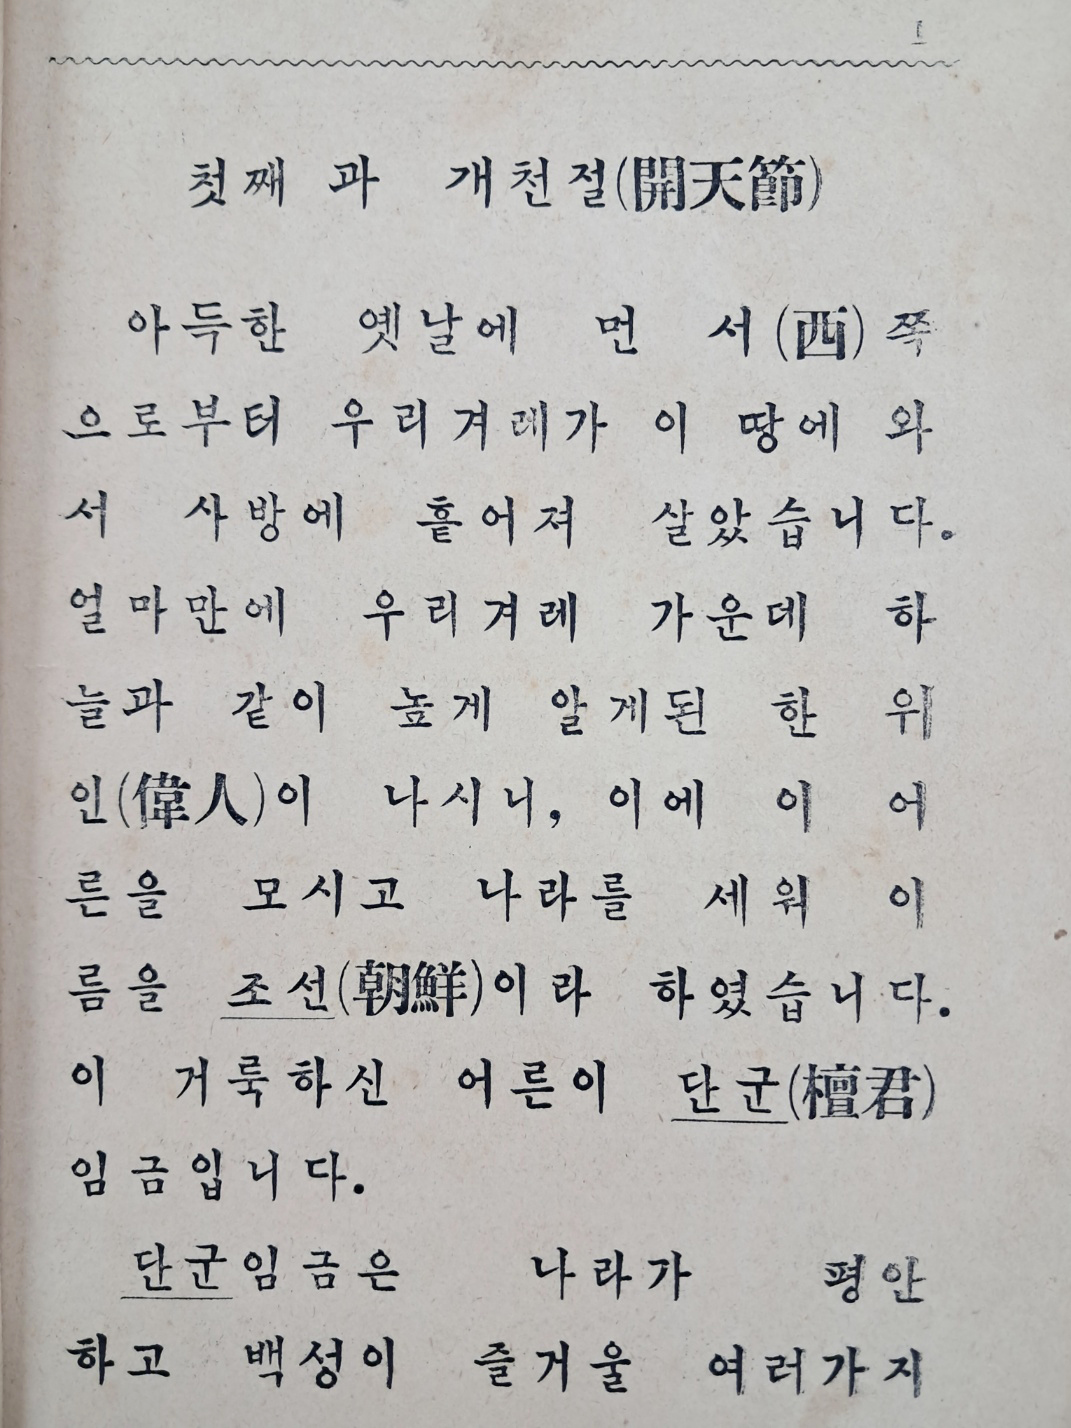 1
첫째 과 개천절(開天節)
아득한 옛날에 먼 서(西)쪽
으로부터 우리겨레가 이 땅에 와
서 사방에 흩어져 살았습니다.
얼마만에 우리겨레 가운데 하
늘과 같이 높게 알게된 한 위
인(偉人)이 나시니, 이에 이 어
른을 모시고 나라를 세워 이
름을 조선(朝鮮)이라 하였습니다.
이 거룩하신 어른이 단군(檀君)
임금입니다.
단군임금은 나라가 평안
하고 백성이 즐거울 여러가지